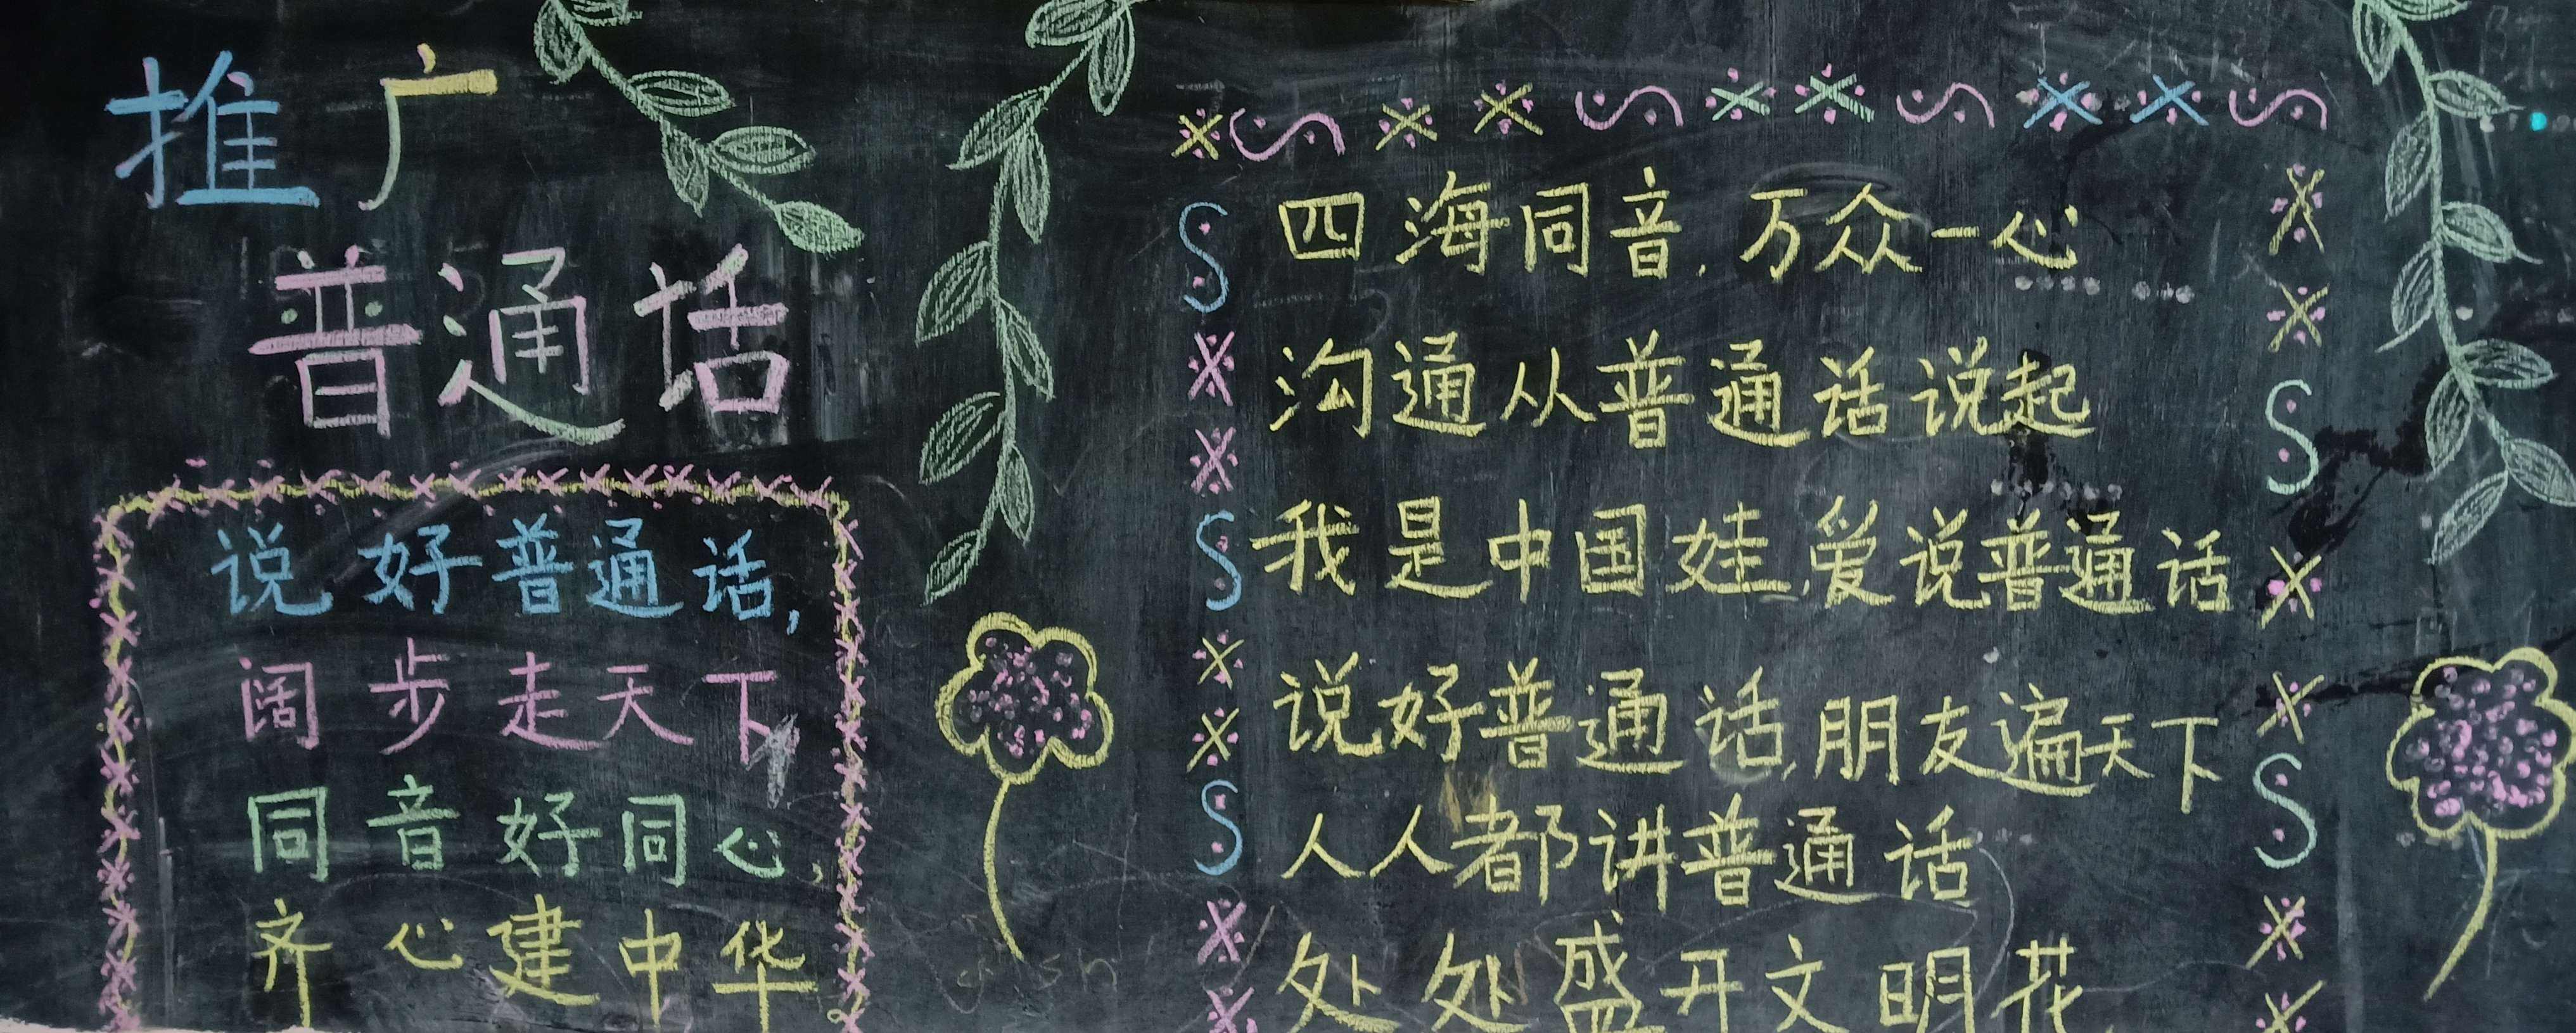 推广
普通话
说好普通话,
阔步走天下
同音好同心,
齐心建中华
四海同音,万众一心
沟通从普通话说起
我是中国娃,爱说普通话
说好普通话,朋友遍天下
人人都讲普通话
处处盛开文明花